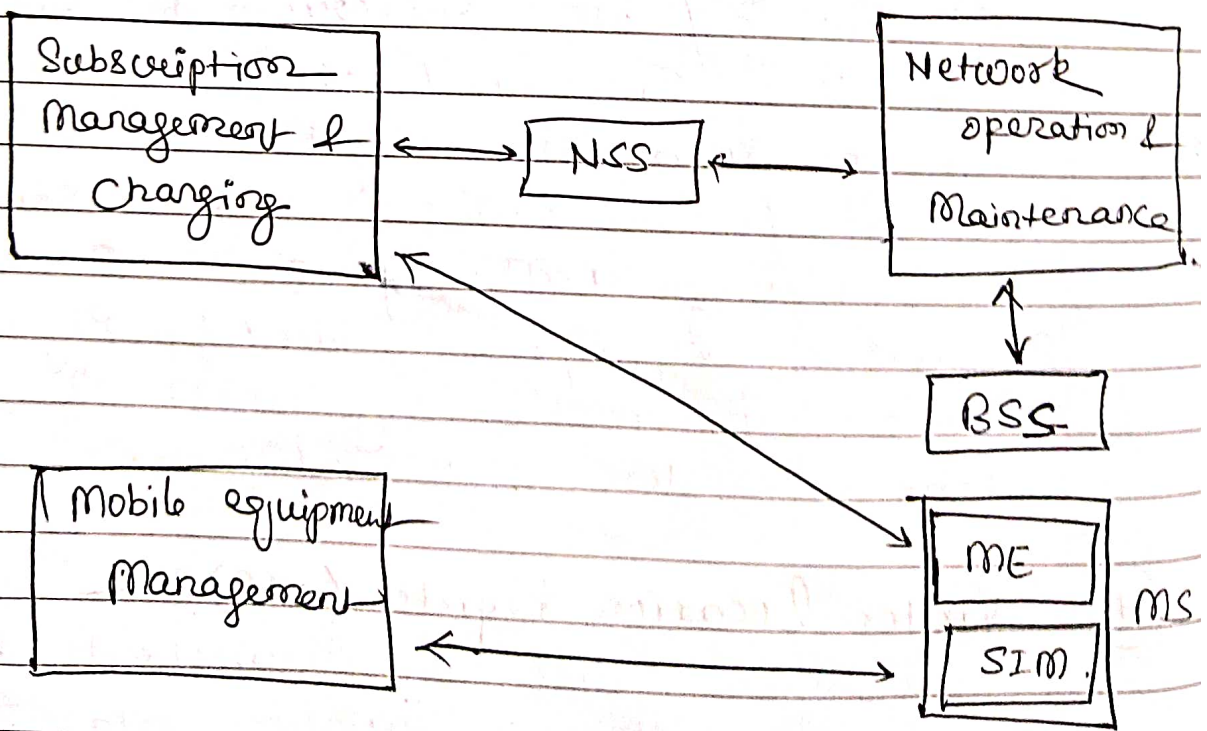 Subscription
Management &
Charging
NSS
Network
operation &
Maintenance
BSS
Mobile equipment
Management
ME
SIM.
MS